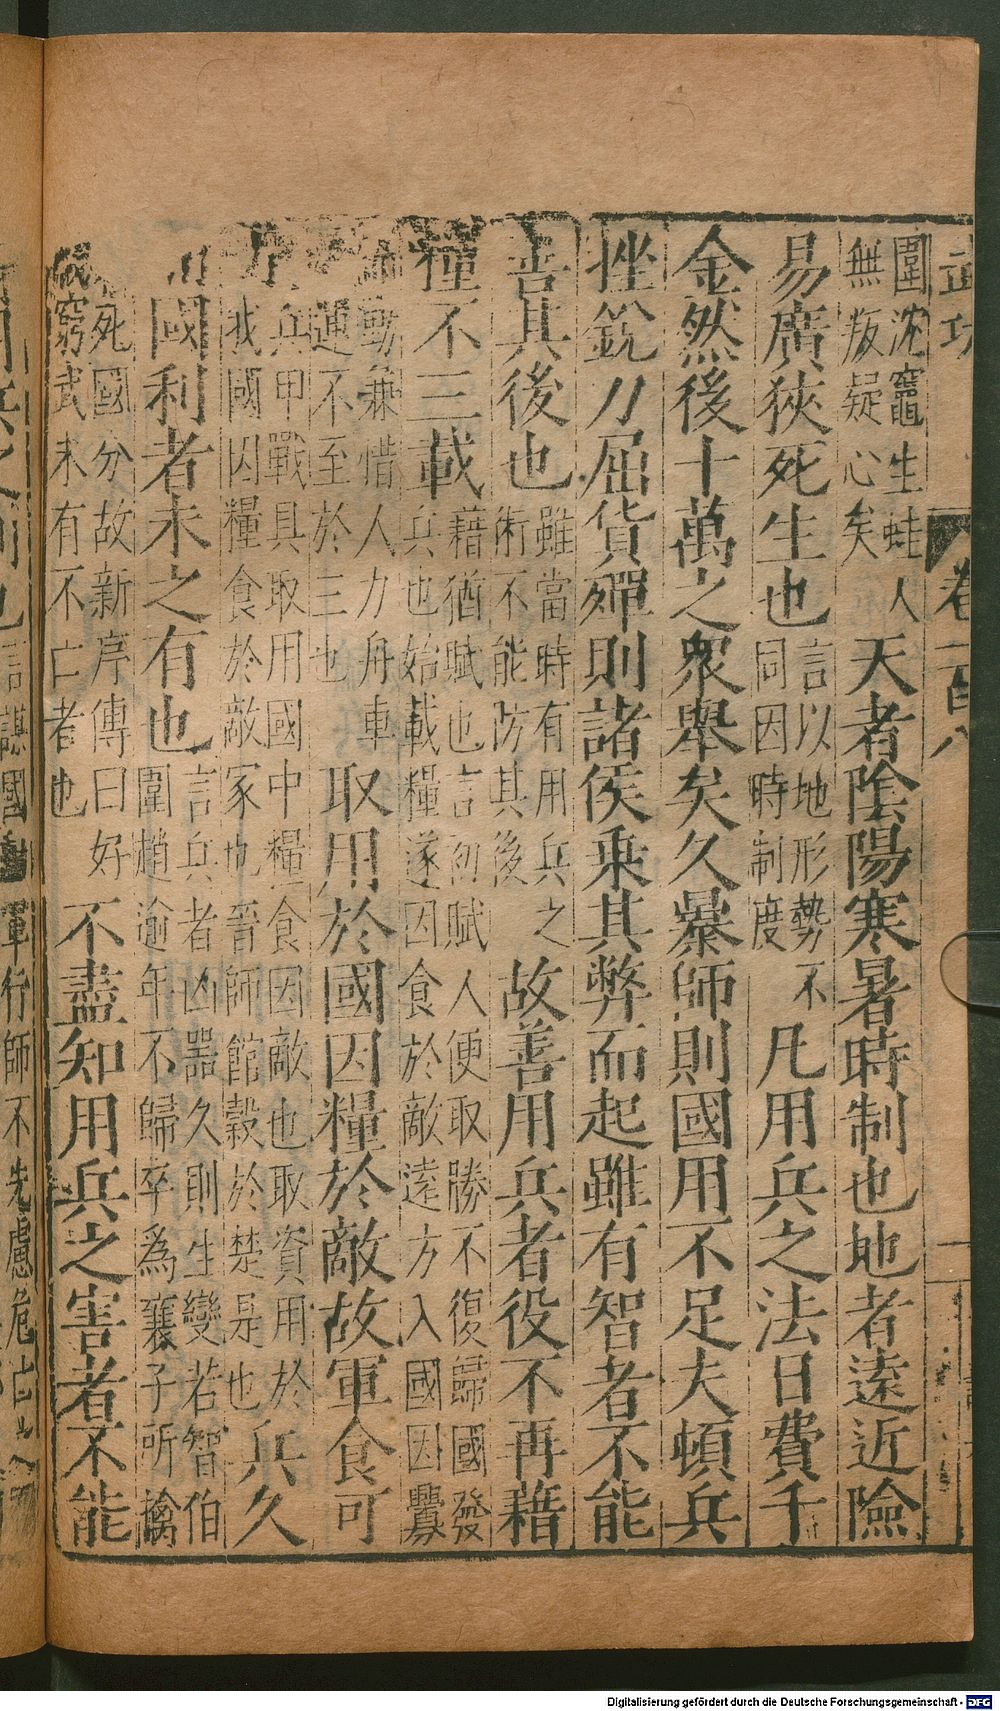 武功
卷一百八
圍沈竈生蛙人
無叛疑心矣
天者陰陽寒暑時制也地者遠近險
易廣狹死生也
言以地形勢不
同因時制度
凡用兵之法日費千
金然後十萬之衆舉矣久暴師則國用不足夫頓兵
挫銳力屈貨殫則諸侯乗其弊而起雖有智者不能
善其後也
雖當時有用兵之
術不能防其後
故善用兵者役不再藉
糧不三載
藉猶賦也言初賦人便取勝不復歸國發
兵也始載糧遂因食於敵遠方入國因釁
動兼惜人力舟車
運不至於三也
取用於國因糧於敵故軍食可
兵甲戰具取用國中糧食因敵也取資用於
我國因糧食於敵家也晉師館穀於楚是也
兵久
國利者未之有也
言兵者凶器久則生變若智伯
圍趙逾年不歸卒爲襄子所擒
死國分故新序傳曰好
戰窮武未有不亡者也
不盡知用兵之害者不能
言謀國
軍行師不先慮危亡
Digitalisierung gefördert durch die Deutsche Forschungsgemeinschaft - DFG